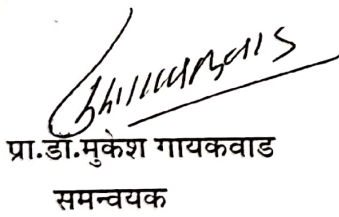 प्रा.डॉ.मुकेश गायकवाड
समन्वयक